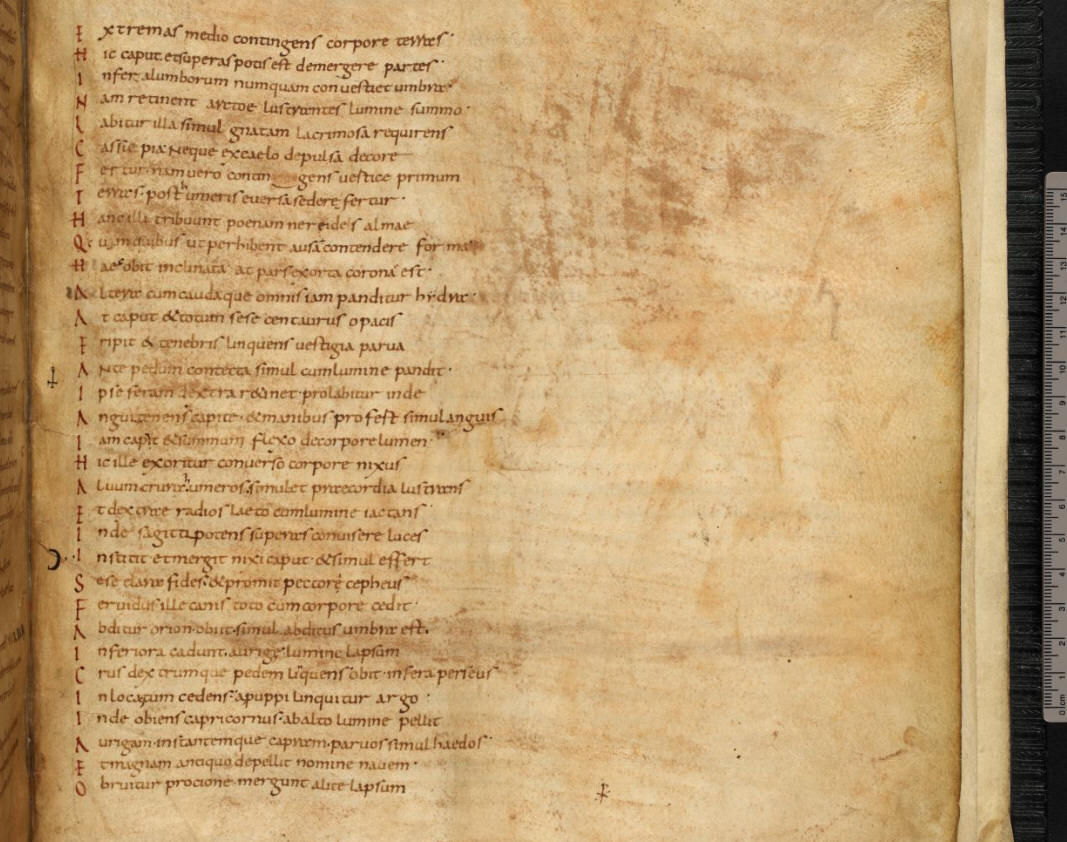 Extremas medio contingens corpore terras
Hic caput et superas potis est demergere partes
Infera lumborum numquam convestiet umbra
Nam retinent arctoe lustrantes lumine summo
Labitur illa simul gnatam lacrimosa requirens
Cassiepia neque ex caelo depulsa decore
Fertur nam vero contingens vestice primum
Terras post umeris eversa sedere fertur
Hanc illi tribuunt poenam nereides almae
Quam cuibus ut perhibent ausa contendere forma
Haec obit inclinata at pars exorta corona est
Altera cum caudaque omnis iam panditur hydra
At caput & totum sese centaurus opacis
Eripit & tenebris linquens vestigia parva
Ante pedum contecta simul cum lumine pandit
Ipse feram dextra r&inet prolabitur inde
Anguitenens capite & manibus profest simul anguis
Iam capit & summum flexo de corpore lumen
Hic ille exoritur converso corpore nixus
Aluum crura umeros simul et praecordia lustrans
Et dextra radios laeto cum lumine iactans
Inde sagittipotens superas convisere luces
Instituit et mergit nixi caput & simul effert
Sese clara fides & promit peccore cepheus
Fervidus ille canis toto cum corpore cedit
Abditur orion obiit simul abditus umbra est
Inferiora cadunt aurigę lumine lapsum
Crus dextrumque pedem linquens obit infera perseus
In locatum cedens a puppi linquitur argo
Inde obiens capricornus ab alto lumine pellit
Aurigam instantemque capram parvos simul haedos
Et magnam antiquo depellit nomine navem
Obruitur procione mergunt alite lapsum